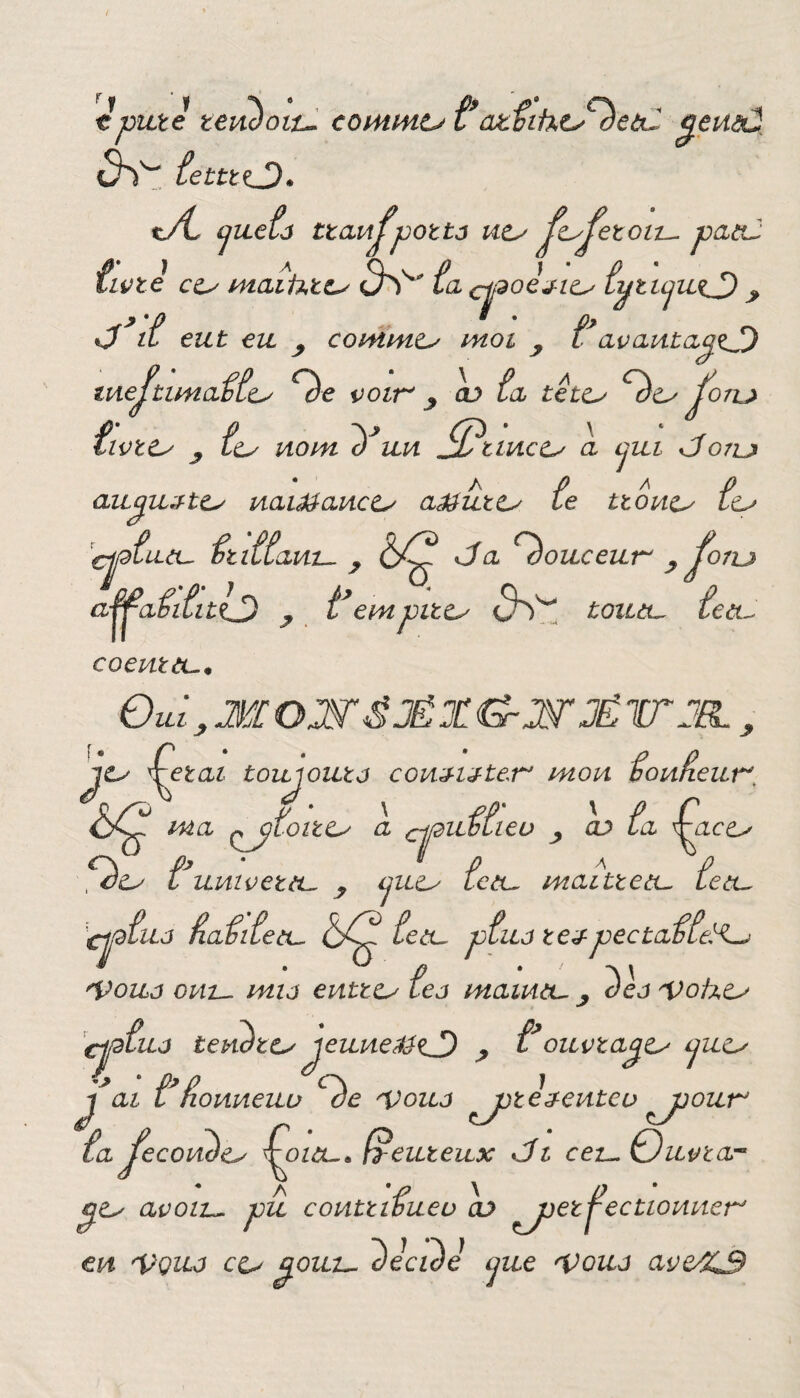 épuré rendoit comme l'arbitre des gens
de lettres.
A quels transports ne se seroit pas
livré ce maître de la poësie lyrique,
s'il eut eu, comme moi, l'avantage
inestimable de voir, à la tête de son
livre, le nom d'un Prince à qui son
auguste naissance assure le trône le
plus brillant, & sa douceur, son
affabilité, l'empire de tous les
coeurs.
Oui, MONSEIGNEUR,
je ferai toujours consister mon bonheur
& ma gloire à publier, à la face
de l'univers, que les maîtres les
plus habiles & les plus respectables
Vous ont mis entre les mains, dès Votre
plus tendre jeunesse, l'ouvrage que
j'ai l'honneur de Vous présenter pour
la seconde fois. Heureux si cet Ouvra-
ge avoit pû contribuer à perfectionner
en Vous ce goût décidé que Vous avez